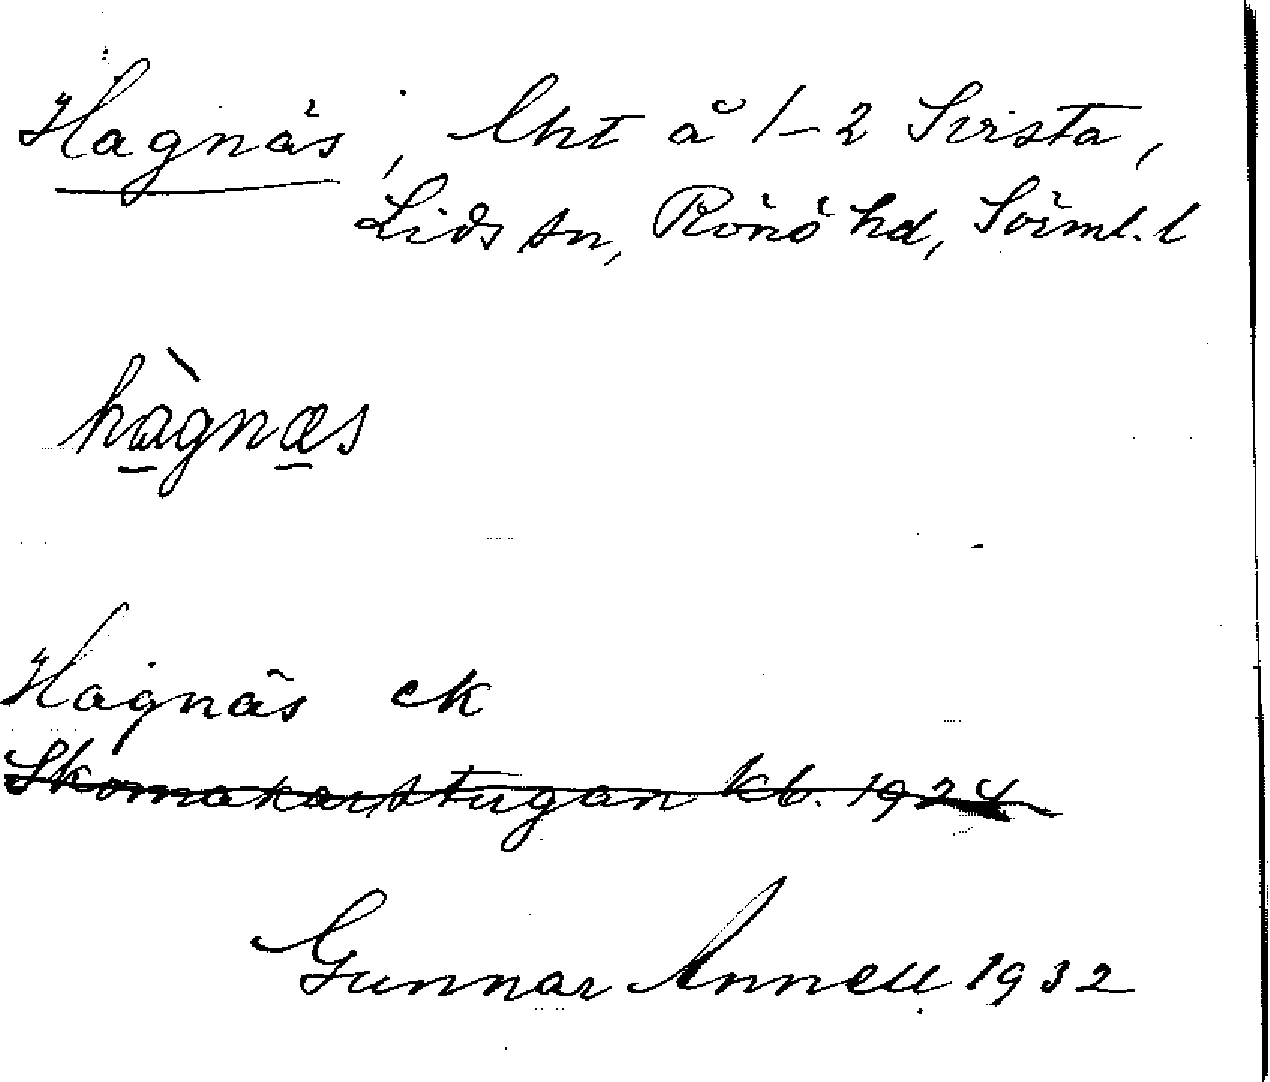 Hagnäs, lht å 1-2 Sersta,
Lids sn, Rönö hd, Sörml. l
hàgnæs
Hagnäs ek
Skomakarstugan kb. 1924
Gunnar Annell 1932